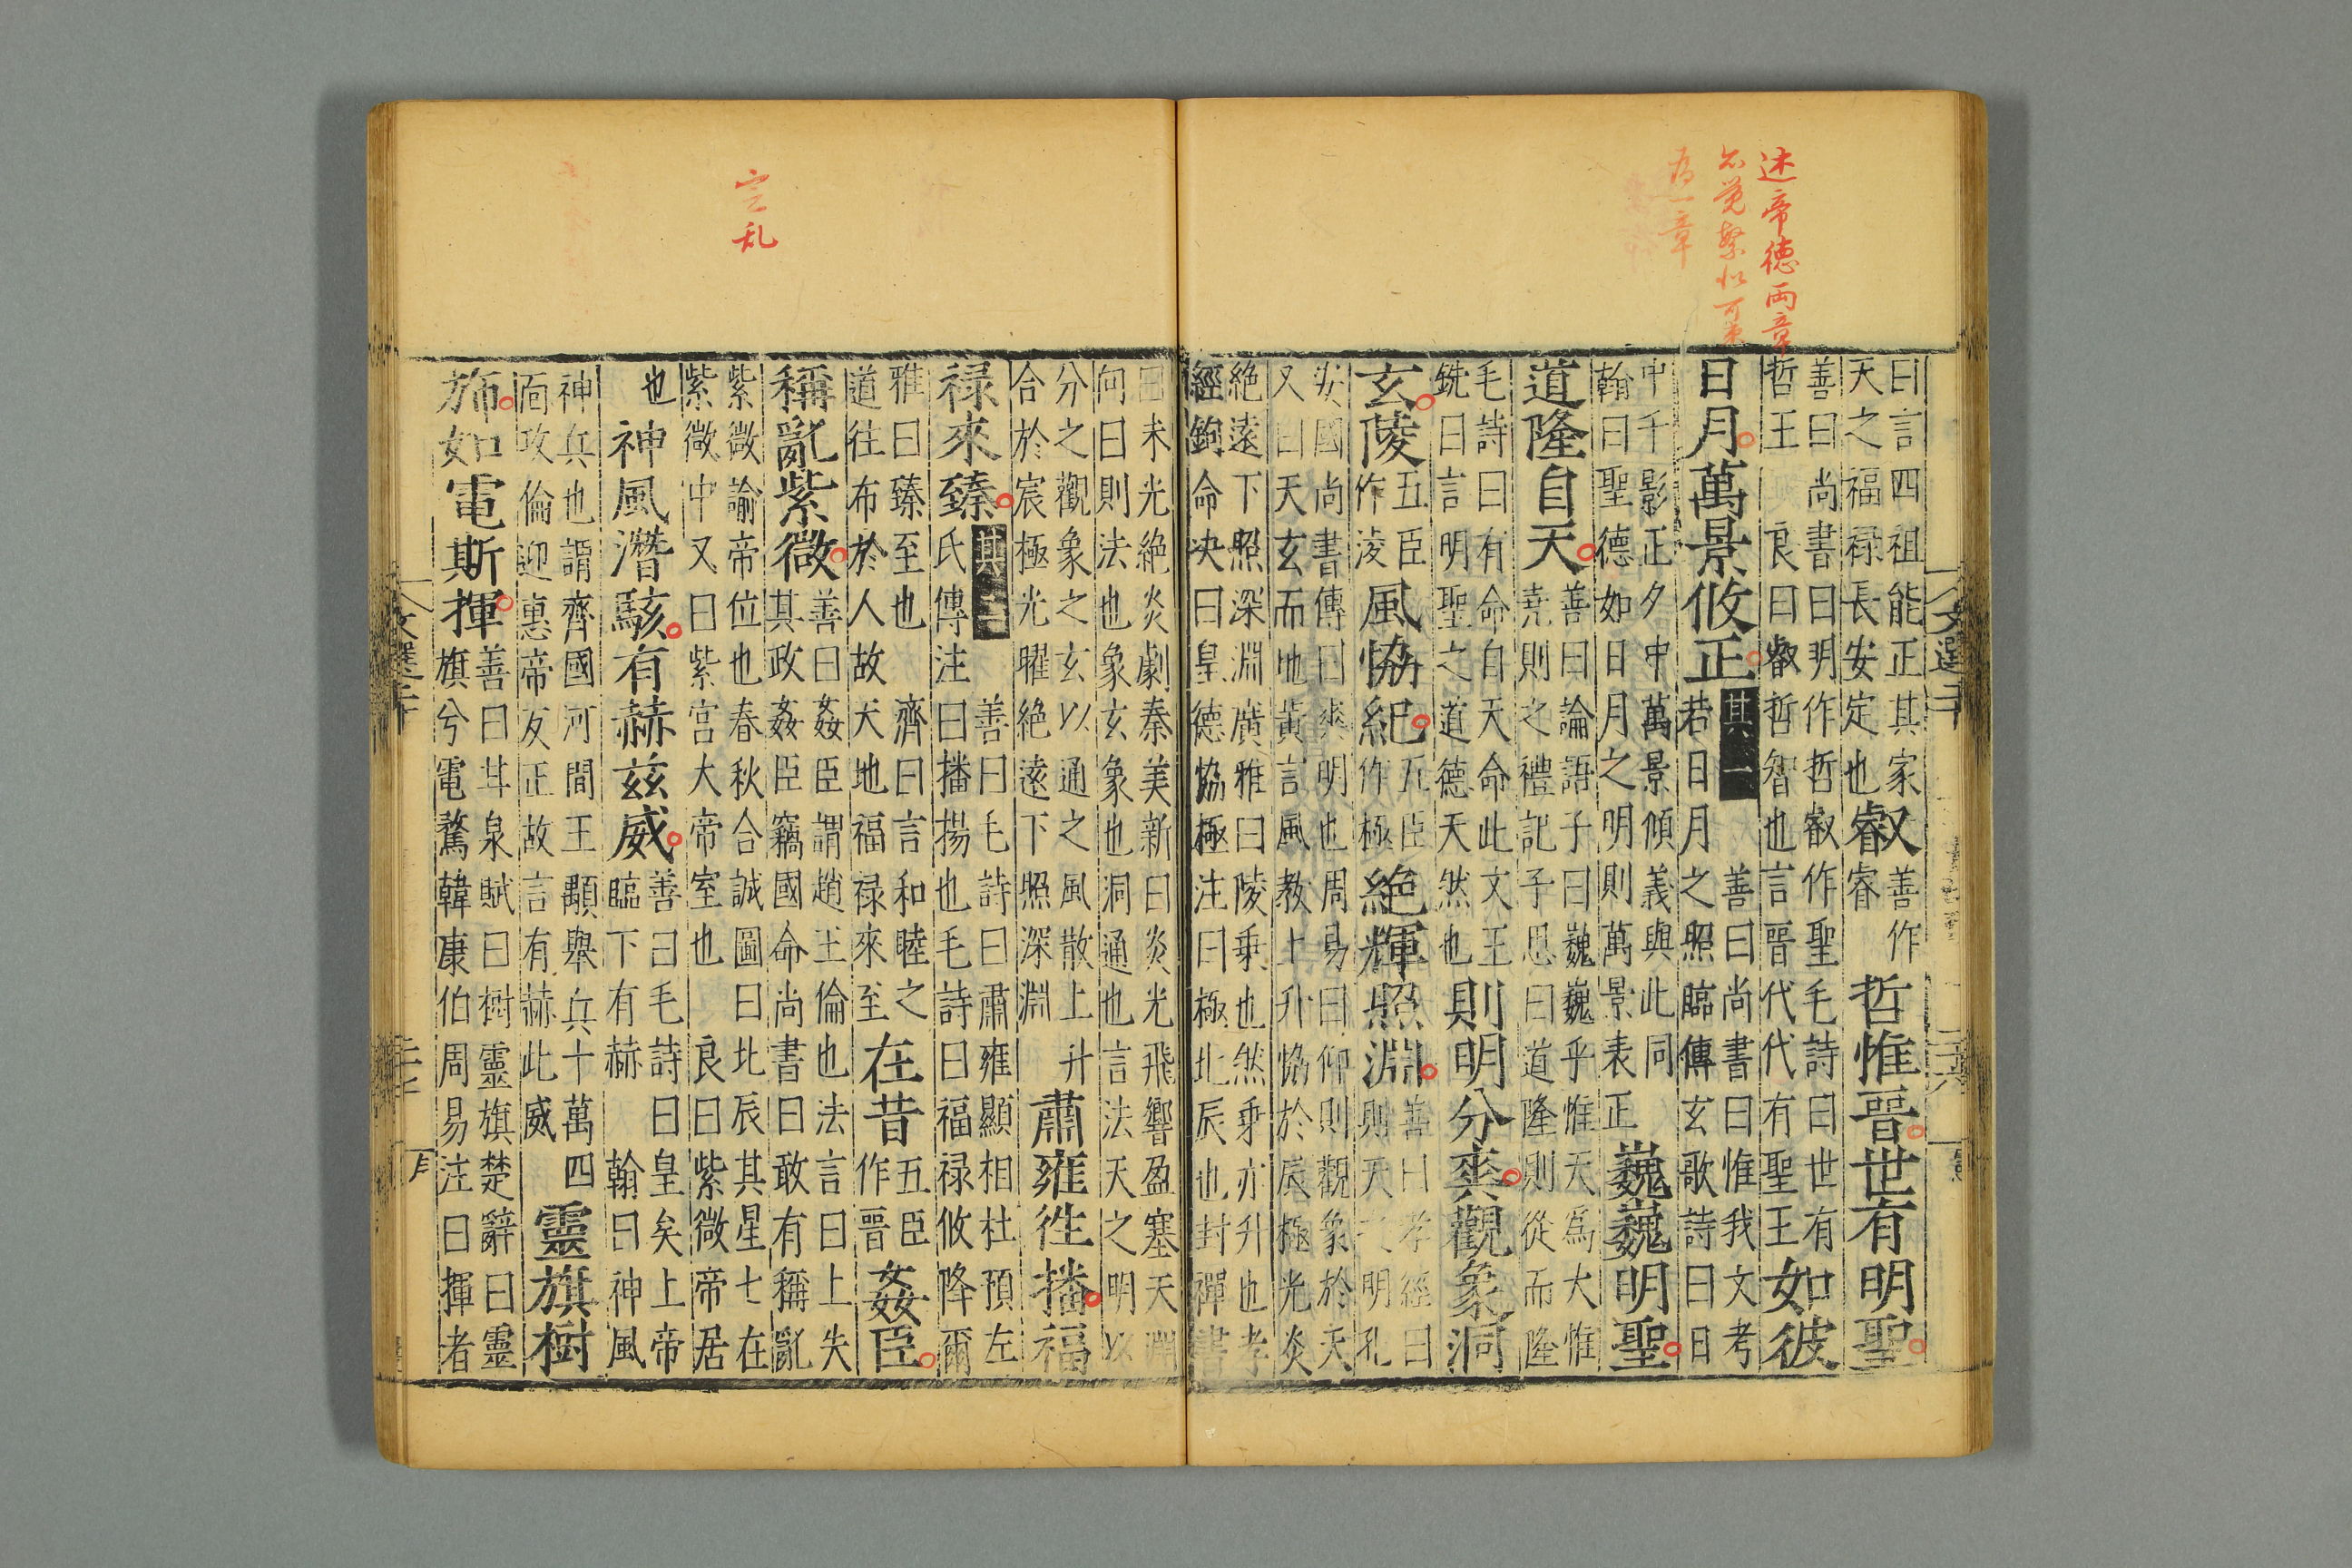 述帝德両章
不覚繁似可
為一章
文選二十
曰言四祖能正其家
天之福祿長安定也
叡
善作
睿
哲惟晉世有明聖
善曰尚書曰明作哲叡作聖毛詩曰世有
哲王 良曰叡哲智也言晉代代有聖王
如彼
日月萬景攸正
其一
善曰尚書曰惟我文考
若日月之照臨傳玄歌詩曰日
中千影正夕中萬景傾義與此同
翰曰聖德如日月之明則萬景表正
巍巍明聖
道隆自天
善曰論語子曰巍巍乎惟天爲大惟
堯則之禮記子思曰道隆則從而隆
毛詩曰有命自天命此文王
銑曰言明聖之道德天然也
則明分爽觀象洞
玄陵
五臣
作淩
風協紀
五臣
作極
絕輝照淵
善曰孝經曰
則天之明孔
安國尚書傳曰爽明也周易曰仰則觀象於天
又曰天玄而地黃言風教上升協於辰極光炎
絕遠下照深淵廣雅曰陵乘也然乘亦升也孝
經鉤命决曰皇德協極注曰極北辰也封禪書
曰未光絕炎劇秦美新曰炎光飛響盈塞天淵
何曰則法也象玄象也洞通也言法天之明以
分之觀象之玄以通之風散上升
合於宸極光曜絕遠下照深淵
肅雍徃播福
祿來臻
其二
善曰毛詩曰肅雍顯相杜預左
氏傳注曰播揚也毛詩曰福祿攸降爾
雅曰臻至也 濟曰言和睦之
道往布於人故天地福祿來至
在昔
五臣
作晉
姦臣
定乱
稱亂紫微
善曰姦臣謂趙王倫也法言曰上失
其政姦臣竊國命尚書曰敢有稱亂
紫微諭帝位也春秋合誠圖曰北辰其星七在
紫微中又曰紫宮大帝室也 良曰紫微帝居
也
神風潛駭有赫茲威
善曰毛詩曰皇矣上帝
臨下有赫 翰曰神風
神兵也謂齊國河間王顒舉兵十萬四
面攻倫迎惠帝反正故言有赫此威
靈旗樹
旆如電斯揮
善曰甘泉賦曰樹靈旗楚辭曰靈
旗兮電鶩韓康伯周易注曰揮者